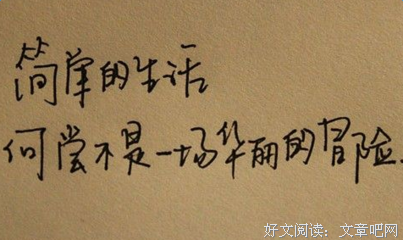 简单的生活
何尝不是一场华丽的冒险.
好文阅读：文章吧网